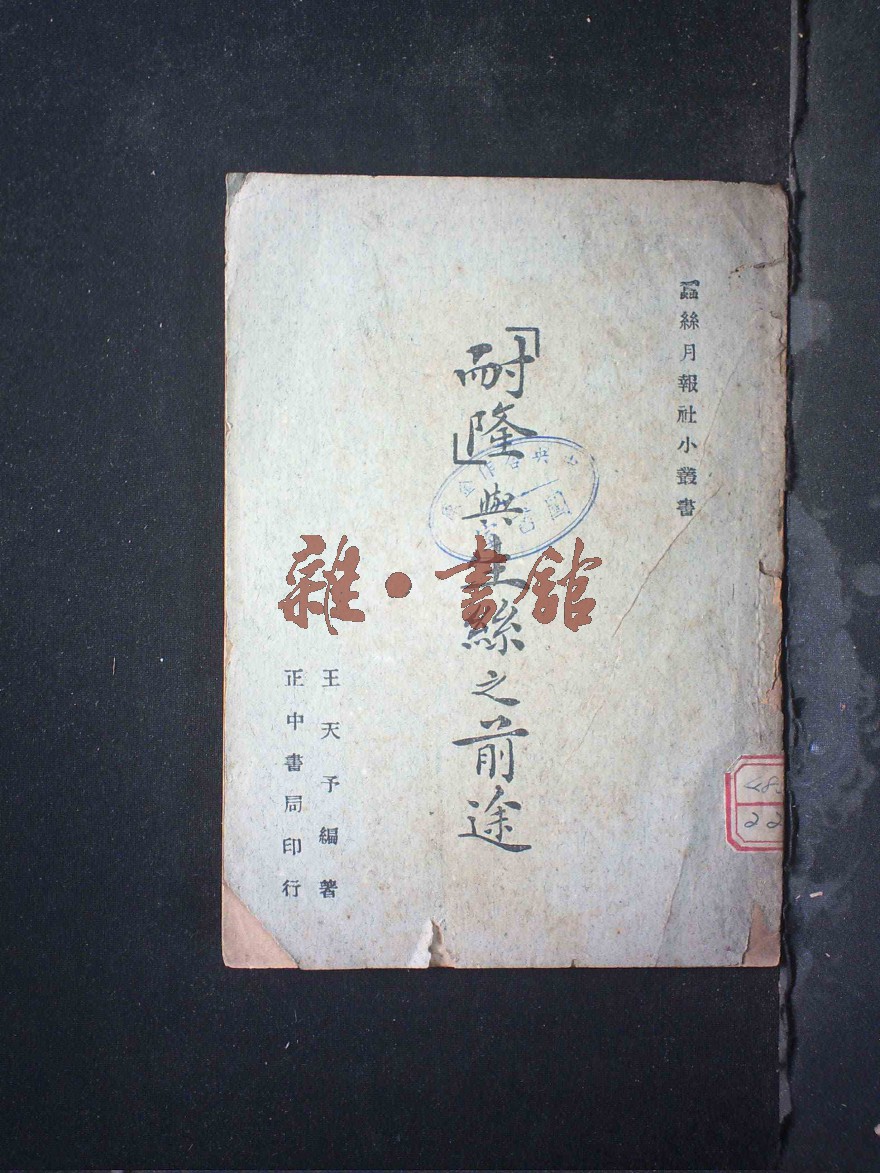 蠶絲月報社小叢書
「耐隆」與生絲之前途
王天予編著
正中書局印行
雜·書館
圖書
48
22